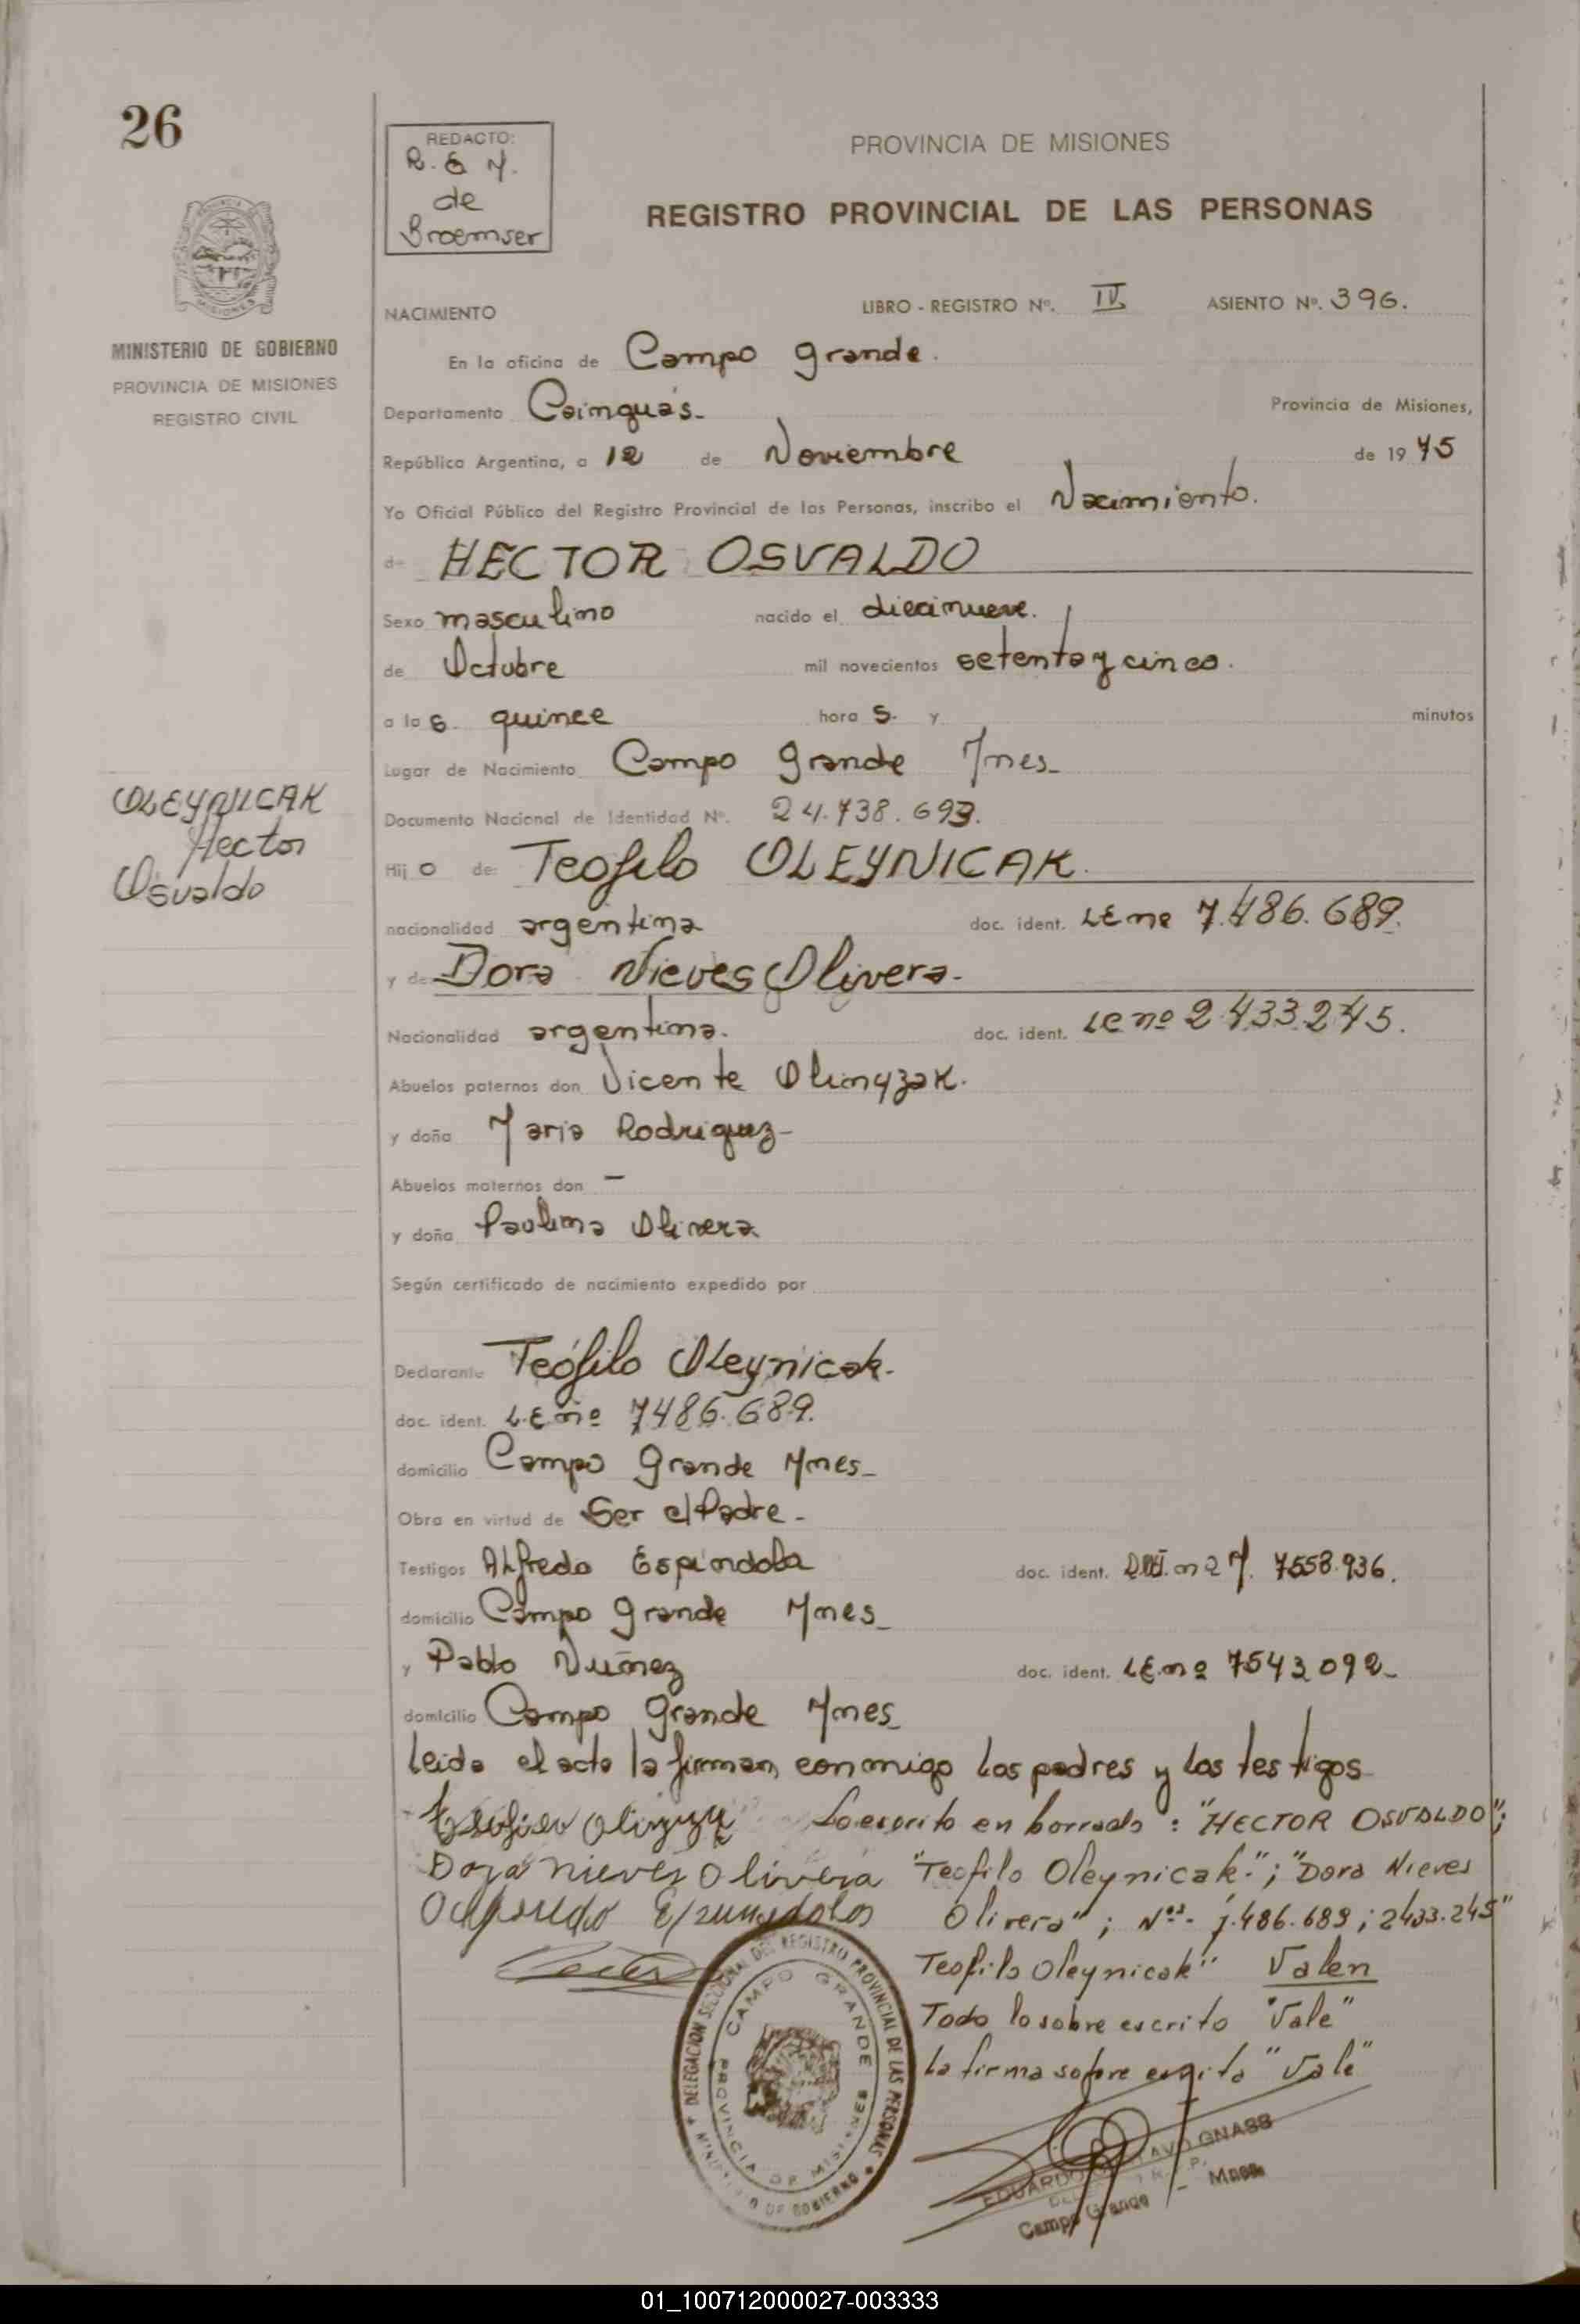 26
REDACTO:
R. E M.
de
Broemser
PROVINCIA DE MISIONES
REGISTRO PROVINCIAL DE LAS PERSONAS
MINISTERIO DE GOBIERNO
PROVINCIA DE MISIONES
REGISTRO CIVIL
NACIMIENTO LIBRO - REGISTRO Nº. IV ASIENTO Nº. 396.
En la oficina de Campo Grande.
Departamento Cainguás- Provincia de Misiones,
República Argentina, a 12 de Noviembre de 19 75
Yo Oficial Público del Registro Provincial de las Personas, inscribo el Nacimiento.
de HECTOR OSVALDO
Sexo masculino nacido el diecinueve.
de Octubre mil novecientos setenta y cinco.
a la s. quince hora s. y minutos
Lugar de Nacimiento Campo Grande Mnes-
Documento Nacional de Identidad Nº. 24.738.693.
OLEYNICAK
Hector
Osvaldo
Hij o de: Teofilo OLEYNICAK.
nacionalidad argentina doc. ident. LE nº 7.486.689.
y de Dora Nieves Olivera-
Nacionalidad argentina. doc. ident. LC nº 2.433.245.
Abuelos paternos don Vicente Olinyzak.
y doña Maria Rodriguez-
Abuelos maternos don -
y doña Paulina Olivera
Según certificado de nacimiento expedido por
Declarante Teófilo Oleynicak.
doc. ident. L.E. nº 7486.689.
domicilio Campo Grande Mnes-
Obra en virtud de Ser el Padre-
Testigos Alfredo Espíndola doc. ident. nº M. 7558.936.
domicilio Campo Grande Mnes-
y Pablo Nuñez doc. ident. LE. nº 7543092-
domicilio Campo Grande Mnes-
Leida el acta la firman conmigo los padres y los testigos
Lo escrito en borrado: "HECTOR OSVALDO";
Dora nieves Olivera "Teofilo Oleynicak."; "Dora Nieves
Olivera"; Nos.- 7.486.689; 2433.245"
Teofilo Oleynicak" Valen
Todo lo sobre escrito "Vale"
La firma sobre escrito "Vale"
DELEGACION SECCIONAL DEL REGISTRO PROVINCIAL DE LAS PERSONAS
MINISTERIO DE GOBIERNO
CAMPO GRANDE
PROVINCIA DE MISIONES
EDUARDO GUSTAVO GNASS
Campo Grande - Mnes
01_100712000027-003333